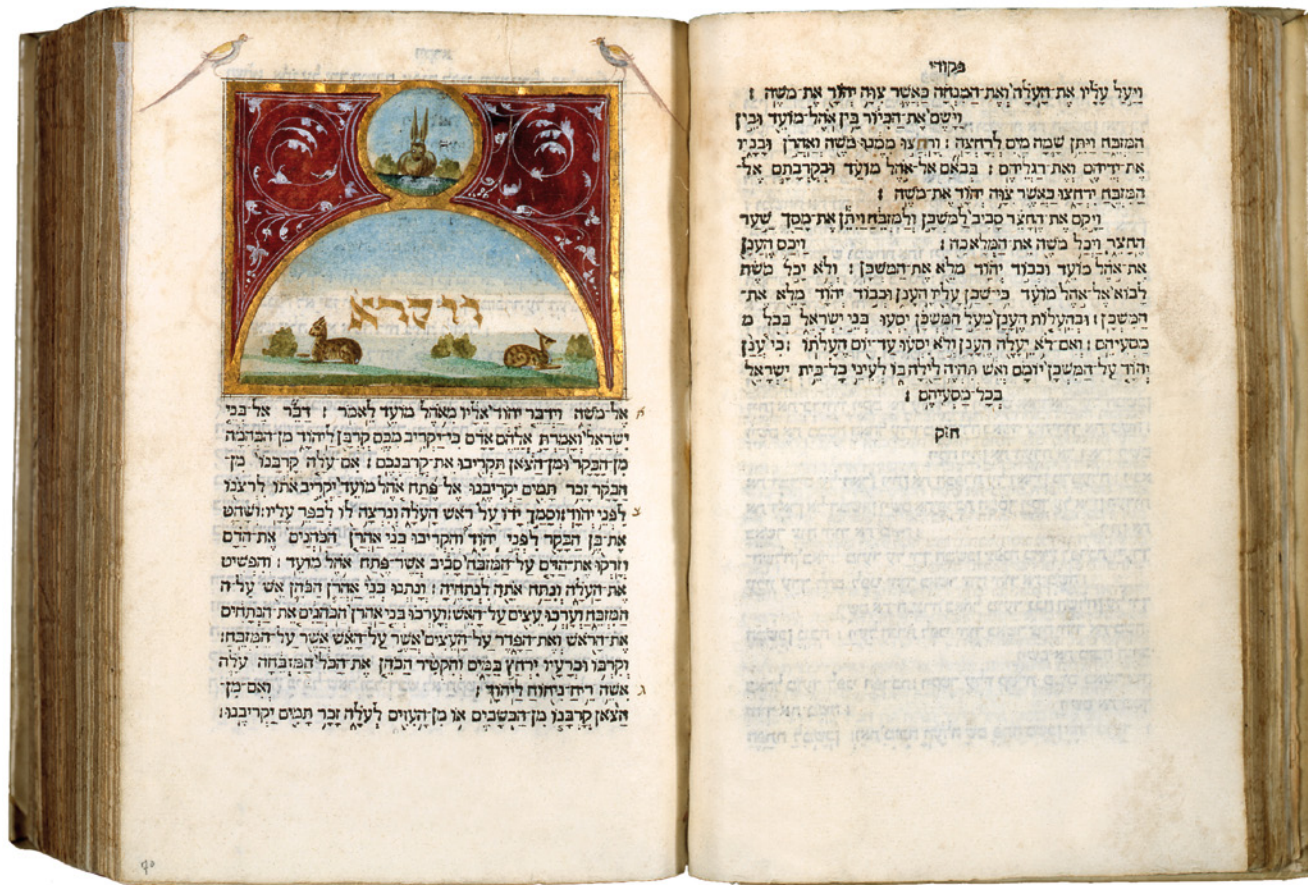 פקודי
ויעל עליו את־העלה ואת־המנחה כאשר צוה יהוה את־משה :
וישם את־הכיור בין־אהל מועד ובין
המזבח ויתן שמה מים לרחצה : ורחצו ממנו משה ואהרן ובניו
את־ידיהם ואת־רגליהם : בבאם אל־אהל מועד ובקרבתם אל־
המזבח ירחצו כאשר צוה יהוה את־משה :
ויקם את־החצר סביב למשכן ולמזבח ויתן את־מסך שער
החצר ויכל משה את־המלאכה : ויכס הענן
את־אהל מועד וכבוד יהוה מלא את־המשכן : ולא יכל משה
לבוא אל־אהל מועד כי־שכן עליו הענן וכבוד יהוה מלא את־
המשכן : ובהעלות הענן מעל המשכן יסעו בני ישראל בכל מ
מסעיהם : ואם־לא יעלה הענן ולא יסעו עד־יום העלתו : כי ענן
יהוה על־המשכן יומם ואש תהיה לילה בו לעיני כל־בית ישראל
בכל־מסעיהם :
חזק
ויקרא
אל־משה וידבר יהוה אליו מאהל מועד לאמר : דבר אל־בני א
ישראל ואמרת אלהם אדם כי־יקריב מכם קרבן ליהוה מן־הבהמה
מן־הבקר ומן־הצאן תקריבו את־קרבנכם : אם־עלה קרבנו מן־
הבקר זכר תמים יקריבנו אל־פתח אהל מועד יקריב אתו לרצנו
לפני יהוה : וסמך ידו על ראש העלה ונרצה לו לכפר עליו : ושחט ב
את־בן הבקר לפני יהוה והקריבו בני אהרן הכהנים את־הדם
וזרקו את־הדם על־המזבח סביב אשר־פתח אהל מועד : והפשיט
את־העלה ונתח אתה לנתחיה : ונתנו בני אהרן הכהן אש על־ה
המזבח וערכו עצים על־האש : וערכו בני אהרן הכהנים את הנתחים
את־הראש ואת־הפדר על־העצים אשר על־האש אשר על־המזבח :
וקרבו וכרעיו ירחץ במים והקטיר הכהן את־הכל המזבחה עלה
אשה ריח־ניחוח ליהוה : ואם־מן־ ג
הצאן קרבנו מן־הכשבים או מן־העזים לעלה זכר תמים יקריבנו :